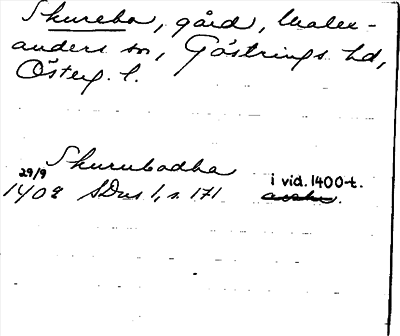 Skurebo, gård, Malex-
anders sn, Göstrings hd,
Österg. l.
Skurubodha
29/9
1408 SDns 1, s. 171 i vid. 1400-t.